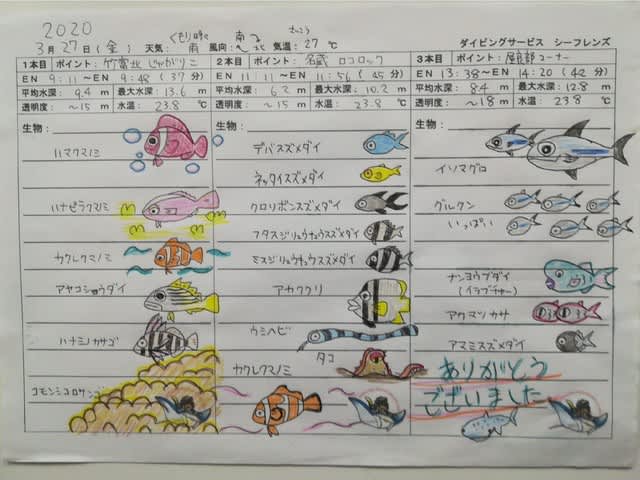 2020
3月27日(金) 天気: くもり時々雨 風向: 南→北 気温: 27℃
ダイビングサービス シーフレンズ
1本目 ポイント: 竹富北 じゃがリこ
EN 9:11〜EN 9:48 (37分)
平均水深: 9.4 m 最大水深: 13.6 m
透明度: 〜15 m 水温: 23.8 ℃
生物:
ハマクマノミ
ハナビラクマノミ
カクレクマノミ
アヤコショウダイ
ハナミノカサゴ
コモンシコロサンゴ
2本目 ポイント: 名蔵 ロコロック
EN 11:11〜EN 11:56 (45分)
平均水深: 6.2 m 最大水深: 10.2 m
透明度: 〜15 m 水温: 23.8 ℃
生物:
デバスズメダイ
ネッタイスズメダイ
クロリボンスズメダイ
フタスジリュウキュウスズメダイ
ミスジリュウキュウスズメダイ
アカククリ
ウミヘビ
タコ
カクレクマノミ
3本目 ポイント: 屋良部コーナー
EN 13:38〜EN 14:20 (42分)
平均水深: 8.4 m 最大水深: 12.9 m
透明度: 〜18 m 水温: 23.8 ℃
生物:
イソマグロ
グルクン
いっぱい
ナンヨウブダイ
(イラブチャー)
アカマツカサ
アマミスズメダイ
ありがとう
ございました